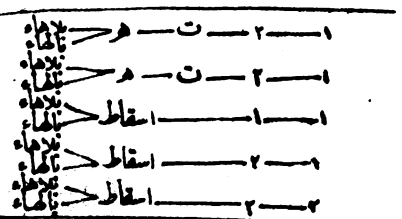 ١ — ٢ — ت — ه بلاهاء
بالهاء
١ — ٢ — ت — ه بلاهاء
بالهاء
١ — ١ — اسقاط بلاهاء
بالهاء
١ — ٢ — اسقاط بلاهاء
بالهاء
٢ — ٢ — اسقاط بلاهاء
بالهاء